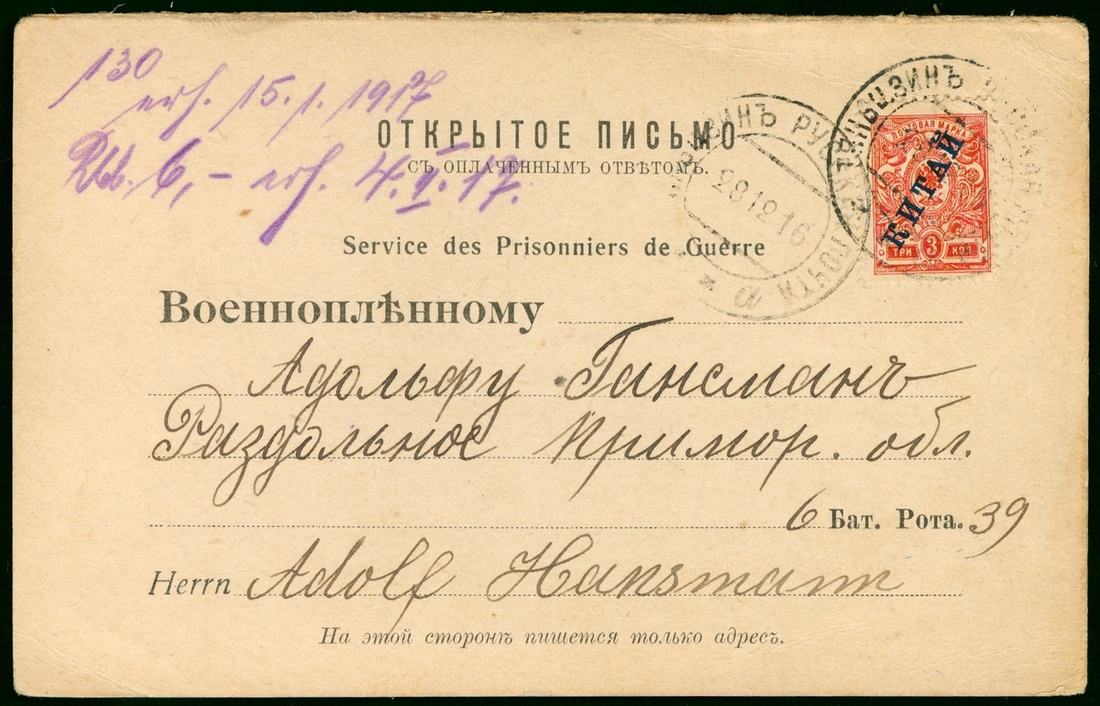 130
erh. 15. 1. 1917
Rbl. 6,- erh. 4. II. 17.
ОТКРЫТОЕ ПИСЬМО
СЪ ОПЛАЧЕННЫМЪ ОТВѢТОМЪ.
ТЯНЬЦЗИНЪ
28 12 16
ПОЧТА
ПОЧТОВАЯ МАРКА
КИТАЙ
ТРИ 3 КОП
Service des Prisonniers de Guerre
Военноплѣнному
Адольфу Гансманъ
Раздольное Примор. обл.
6 Бат. Рота. 39
Herrn Adolf Hansmann
На этой сторонѣ пишется только адресъ.